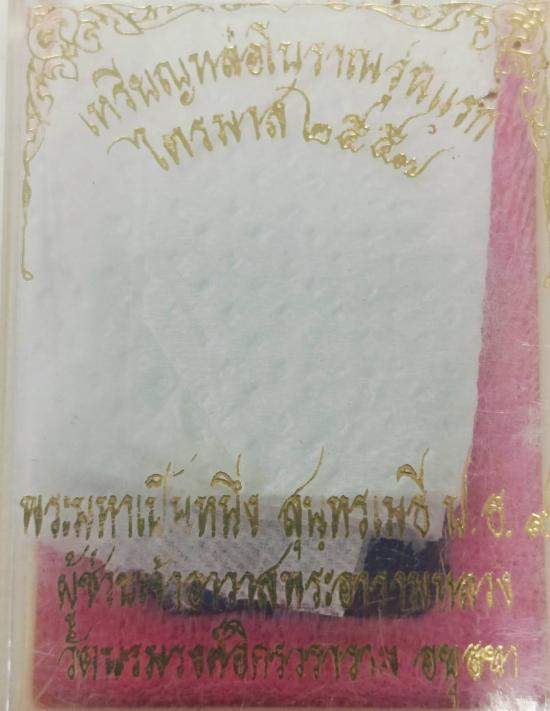 เหรียญหล่อโบราณรุ่นแรก
ไตรมาส ๒๕๕๗
พระมหาเป็นหนึ่ง สุนฺทรเมธี ป.ธ. ๙
ผู้ช่วยเจ้าอาวาสพระอารามหลวง
วัดบรมวงศ์อิศรวราราม อยุธยา